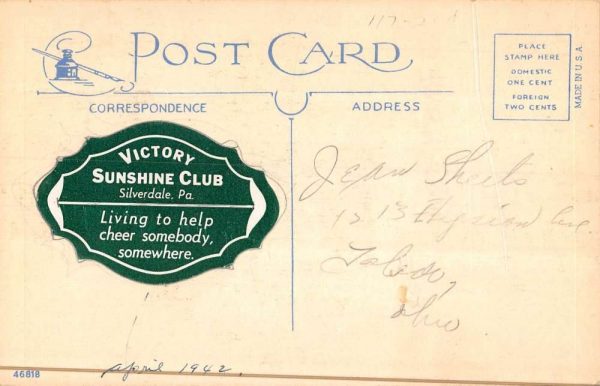 117-
POST CARD
PLACE
STAMP HERE
DOMESTIC
ONE CENT
FOREIGN
TWO CENTS
MADE IN U.S.A.
CORRESPONDENCE
ADDRESS
VICTORY
SUNSHINE CLUB
Silverdale, Pa.
Living to help
cheer somebody,
somewhere.
Jean Sheets
Elysian Ave
Toledo,
Ohio
April 1942.
46818